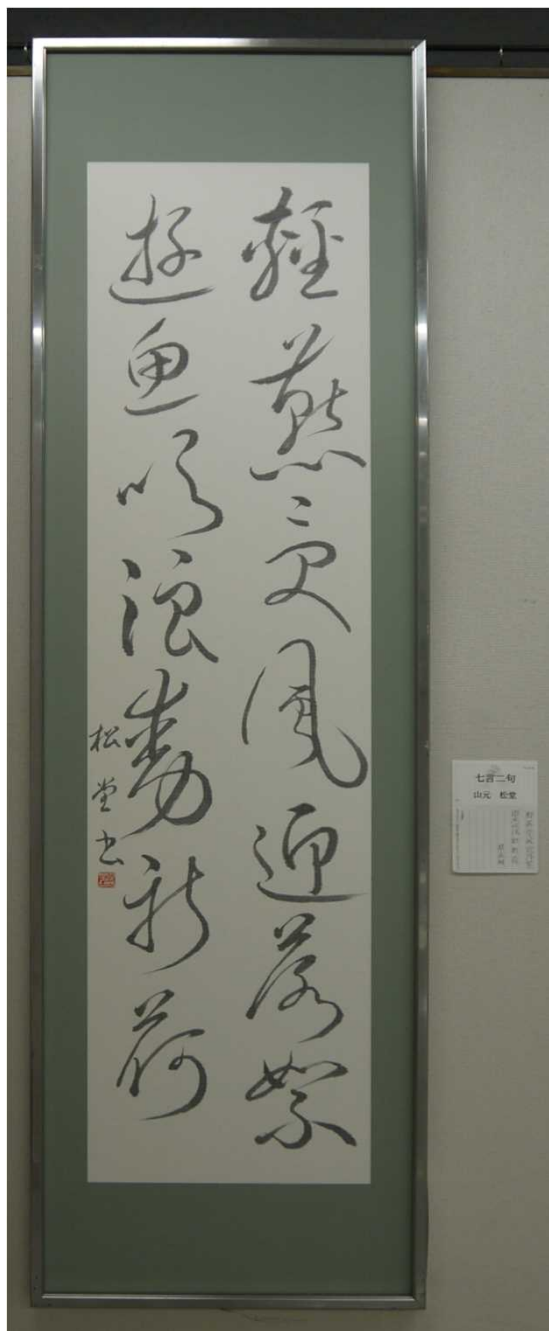 輕燕受風迎落絮
遊魚吹浪動新荷
松堂書
七言二句
山元 松堂